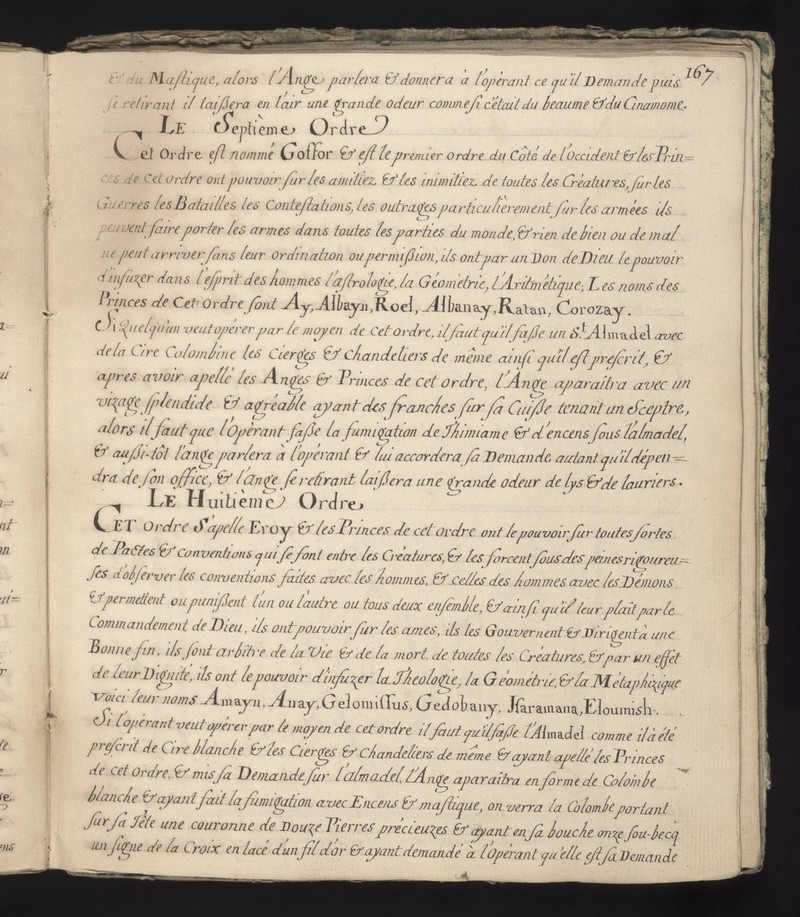 167
& du Mastique, alors l'Ange parlera & donnera a l'opérant ce qu'il Demande puis
se retirant il laißera en l'air une grande odeur comme si c'était du beaume & du Cinamome.
LE Septième Ordre
Cet Ordre est nommé Goffor & est le premier ordre du Côté de l'occident & les Prin=
ces de Cet ordre ont pouvoir sur les amitiez & les inimitiez de toutes les Créatures, sur les
Guerres les Batailles les Contestations, les outrages particulièrement sur les armées ils
peuvent faire porter les armes dans toutes les parties du monde, & rien de bien ou de mal
ne peut arriver sans leur ordination ou permißion, ils ont par un Don de Dieu le pouvoir
d'infuzer dans l'esprit des hommes l'astrologie, la Géometrie, l'Aritmétique; Les noms des
Princes de Cet Ordre sont Ay, Albayn, Roel, Albanay, Ratan, Corozay.
Si Quelqu'un veut opérer par le moyen de cet ordre, il faut qu'il faße un St. Almadel avec
de la Cire Colombine les Cierges & Chandeliers de même ainsi qu'il est prescrit, &
apres avoir apellé les Anges & Princes de cet ordre, l'Ange aparaîtra avec un
vizage splendide & agréable ayant des franches sur sa Cuiße tenant un Sceptre,
alors il faut que l'Opérant faße la fumigation de Thimiame & d'encens sous l'almadel,
& außi-tôt l'ange parlera à l'opérant & lui accordera sa Demande autant qu'il dépen=
dra de son office, & l'ange se retirant laißera une grande odeur de lys & de lauriers.
LE Huitième Ordre
CET Ordre S'apelle Eroy & les Princes de cet ordre ont le pouvoir sur toutes sortes
de Pactes & Conventions qui se font entre les Créatures, & les forcent sous des peines rigoureu=
ses d'observer les conventions faites avec les hommes, & celles des hommes avec les Démons
& permettent ou punißent l'un ou l'autre ou tous deux ensemble, & ainsi qu'il leur plaît par le
Commandement de Dieu, ils ont pouvoir sur les ames, ils les Gouvernent & Dirigent à une
Bonne fin, ils sont arbitre de la Vie & de la mort de toutes les Créatures, & par un effet
de leur Dignité, ils ont le pouvoir d'infuzer la Theologie, la Géométrie, & la Métaphizique
Voici leur noms Amayn, Anay, Gelomiffus, Gedobany, Haramana, Eloumish.
Si l'opérant veut opérer par le moyen de cet ordre il faut qu'il faße l'Almadel comme il à été
prescrit de Cire blanche & les Cierges & Chandeliers de même & ayant apellé les Princes
de cet Ordre, & mis sa Demande sur l'almadel, l'Ange aparaîtra en forme de Colombe
blanche & ayant fait la fumigation avec Encens & mastique, on verra la Colombe portant
sur sa Tête une couronne de Douze Pierres précieuzes & ayant en sa bouche onze sou-becq
un signe de la Croix en lacé d'un fil d'or & ayant demandé à l'Opérant qu'elle est sa Demande